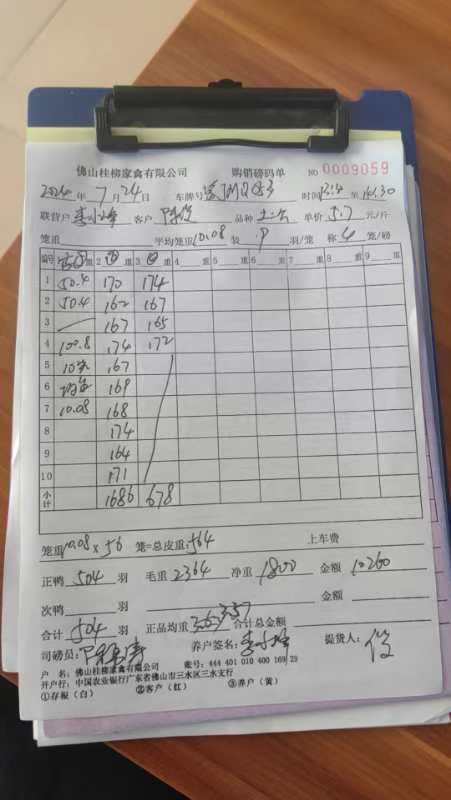 佛山桂柳家禽有限公司 购销磅码单 NO 0009059
2024年7月24日 车牌号 时间 至16:30
联营户 客户 品种 单价5.7元/斤
笼重 平均笼重10.08 装 9 羽/笼 称4笼/磅
编号 重 2 重 3 重 4 重 5 重 6 重 7 重 8 重 9 重
1 50.4 170 174
2 50.4 162 167
3 167 165
4 100.8 174 172
5 10笼 167
6 均重 169
7 10.08 168
8 174
9 164
10 171
小计 1686 678
笼重10.08×56 笼=总皮重:564 上车费
正鸭 504 羽 毛重 2364 净重 1800 金额 10260
次鸭 羽 金额
合计 504 羽 正品均重 3.57 合计总金额
司磅员: 养户签名: 提货人:
户 名:佛山桂柳家禽有限公司 账号:444 401 010 400 169 29
开户行:中国农业银行广东省佛山市三水区三水支行
①存根(白) ②客户(红) ③养户(黄)